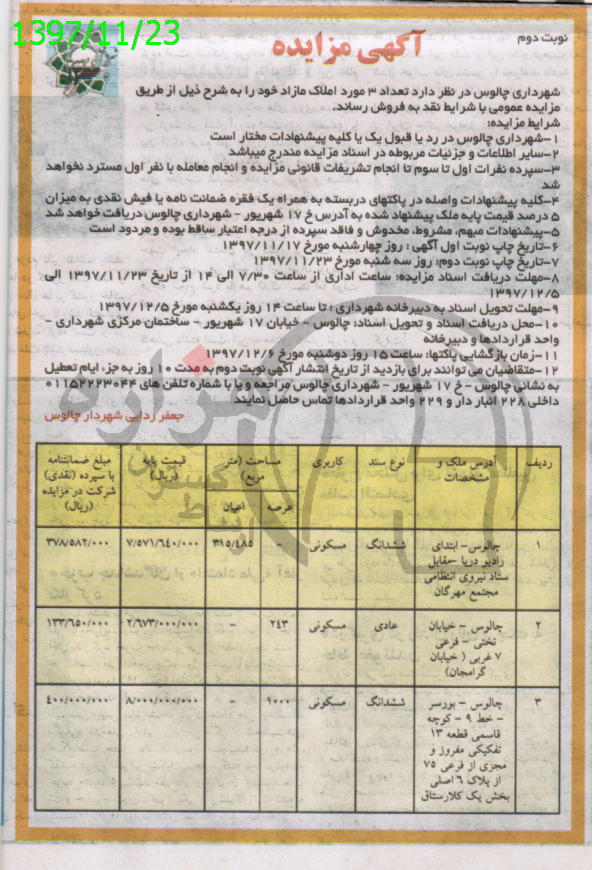 1397/11/23
نوبت دوم
آگهی مزایده
شهرداری چالوس در نظر دارد تعداد ۳ مورد املاک مازاد خود را به شرح ذیل از طریق
مزایده عمومی با شرایط نقد به فروش رساند.
شرایط مزایده:
۱-شهرداری چالوس در رد یا قبول یک یا کلیه پیشنهادات مختار است
۲-سایر اطلاعات و جزئیات مربوطه در اسناد مزایده مندرج میباشد
۳-سپرده نفرات اول تا سوم تا انجام تشریفات قانونی مزایده و انجام معامله با نفر اول مسترد نخواهد
شد
۴-کلیه پیشنهادات واصله در پاکتهای دربسته به همراه یک فقره ضمانت نامه یا فیش نقدی به میزان
۵ درصد قیمت پایه ملک پیشنهاد شده به آدرس خ ۱۷ شهریور - شهرداری چالوس دریافت خواهد شد
۵-پیشنهادات مبهم، مشروط، مخدوش و فاقد سپرده از درجه اعتبار ساقط بوده و مردود است
۶-تاریخ چاپ نوبت اول آگهی : روز چهارشنبه مورخ ۱۳۹۷/۱۱/۱۷
۷-تاریخ چاپ نوبت دوم: روز سه شنبه مورخ ۱۳۹۷/۱۱/۲۳
۸-مهلت دریافت اسناد مزایده: ساعت اداری از ساعت ۷/۳۰ الی ۱۴ از تاریخ ۱۳۹۷/۱۱/۲۳ الی
۱۳۹۷/۱۲/۵
۹-مهلت تحویل اسناد به دبیرخانه شهرداری : تا ساعت ۱۴ روز یکشنبه مورخ ۱۳۹۷/۱۲/۵
۱۰-محل دریافت اسناد و تحویل اسناد: چالوس - خیابان ۱۷ شهریور - ساختمان مرکزی شهرداری -
واحد قراردادها و دبیرخانه
۱۱-زمان بازگشایی پاکتها: ساعت ۱۵ روز دوشنبه مورخ ۱۳۹۷/۱۲/۶
۱۲-متقاضیان می توانند برای بازدید از تاریخ انتشار آگهی نوبت دوم به مدت ۱۰ روز به جز، ایام تعطیل
به نشانی چالوس - خ ۱۷ شهریور - شهرداری چالوس مراجعه و یا با شماره تلفن های ۰۱۱۵۲۲۲۳۰۴۴
داخلی ۲۲۸ انبار دار و ۲۲۹ واحد قراردادها تماس حاصل نمایند
جعفر ردایی شهردار چالوس
ردیف آدرس ملک و مشخصات نوع سند کاربری مساحت (متر مربع) عرصه اعیان قیمت پایه (ریال) مبلغ ضمانتنامه با سپرده (نقدی) شرکت در مزایده (ریال)
۱ چالوس- ابتدای ششدانگ مسکونی ۳۱۵/۴۸۵ ۷/۵۷۱/۶۴۰/۰۰۰ ۳۷۸/۵۸۲/۰۰۰
رادیو دریا -مقابل
ستاد نیروی انتظامی
مجتمع مهرگان
۲ چالوس - خیابان عادی مسکونی ۲۴۳ - ۲/۶۷۳/۰۰۰/۰۰۰ ۱۳۳/۶۵۰/۰۰۰
تختی - فرعی
۷ غربی ( خیابان
گرامجان)
۳ چالوس - بورسر ششدانگ مسکونی ۱۰۰۰ - ۸/۰۰۰/۰۰۰/۰۰۰ ۴۰۰/۰۰۰/۰۰۰
- خط ۹ - کوچه
قاسمی قطعه ۱۳
تفکیکی مفروز و
مجزی از فرعی ۷۵
از پلاک ۶ اصلی
بخش یک کلارستاق